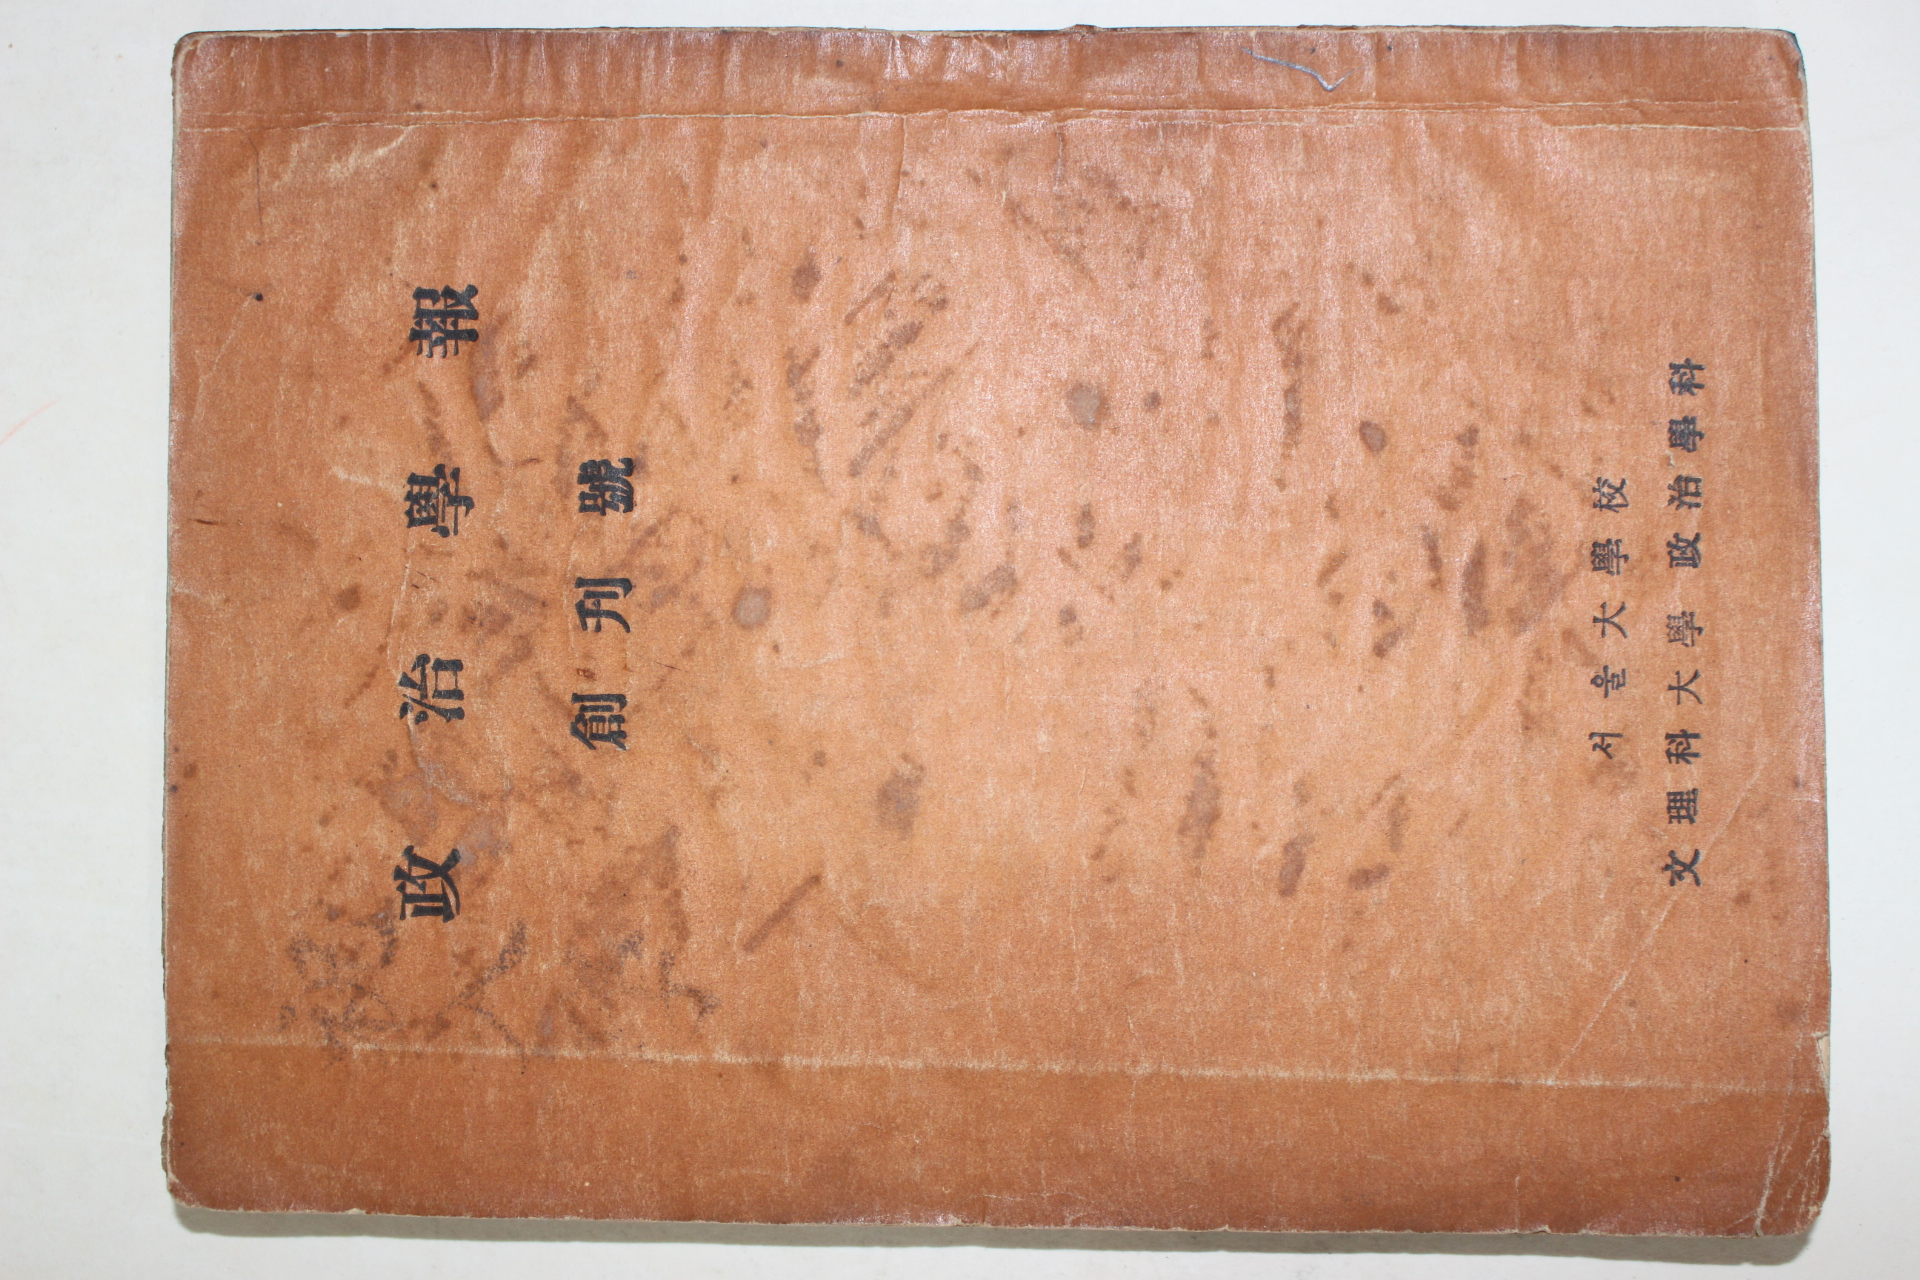 政治學報
創刊號
서울大學校
文理科大學 政治學科